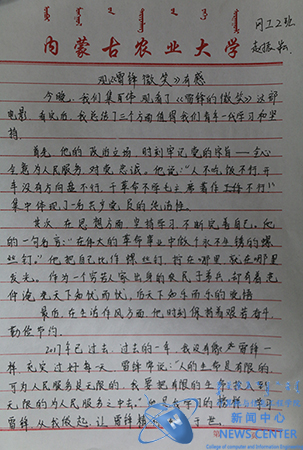 网工2班
内蒙古农业大学
观《雷锋的微笑》有感
今晚，我们集体观看了《雷锋的微笑》这部
电影。看完后，我总结了三个方面值得我们青年一代学习和坚
持。
首先，他的政治立场，时刻牢记党的宗旨——全心
全意为人民服务，对党忠诚。他说："人不吃饭不行，开
车没有方向盘不行，干革命不学毛主席著作工作不行"
集中体现了一名共产党员的
其次，在思想方面，坚持学习，不断完善自己。他
的一句名言："在伟大的革命事业中做个永不生锈的螺
丝钉。"他把自己比作螺丝钉，拧在哪里就在哪里
发光。作为一个穷苦人家出身的
先天下之忧而忧，后天下之乐而乐的
最后，在生活作风方面，他时刻保持着艰苦奋斗，
勤俭节约。
2017年已过去，过去的一年，我没有像雷锋一
样，充实过好每一天，雷锋常说："人的生命是有限的，
可为人民服务是无限的，我要把有限的生命投入到
无限的为人民服务之中去。"
雷锋，从我做起，让雷锋精
新闻中心
NEWS CENTER
College of computer and Information engineering